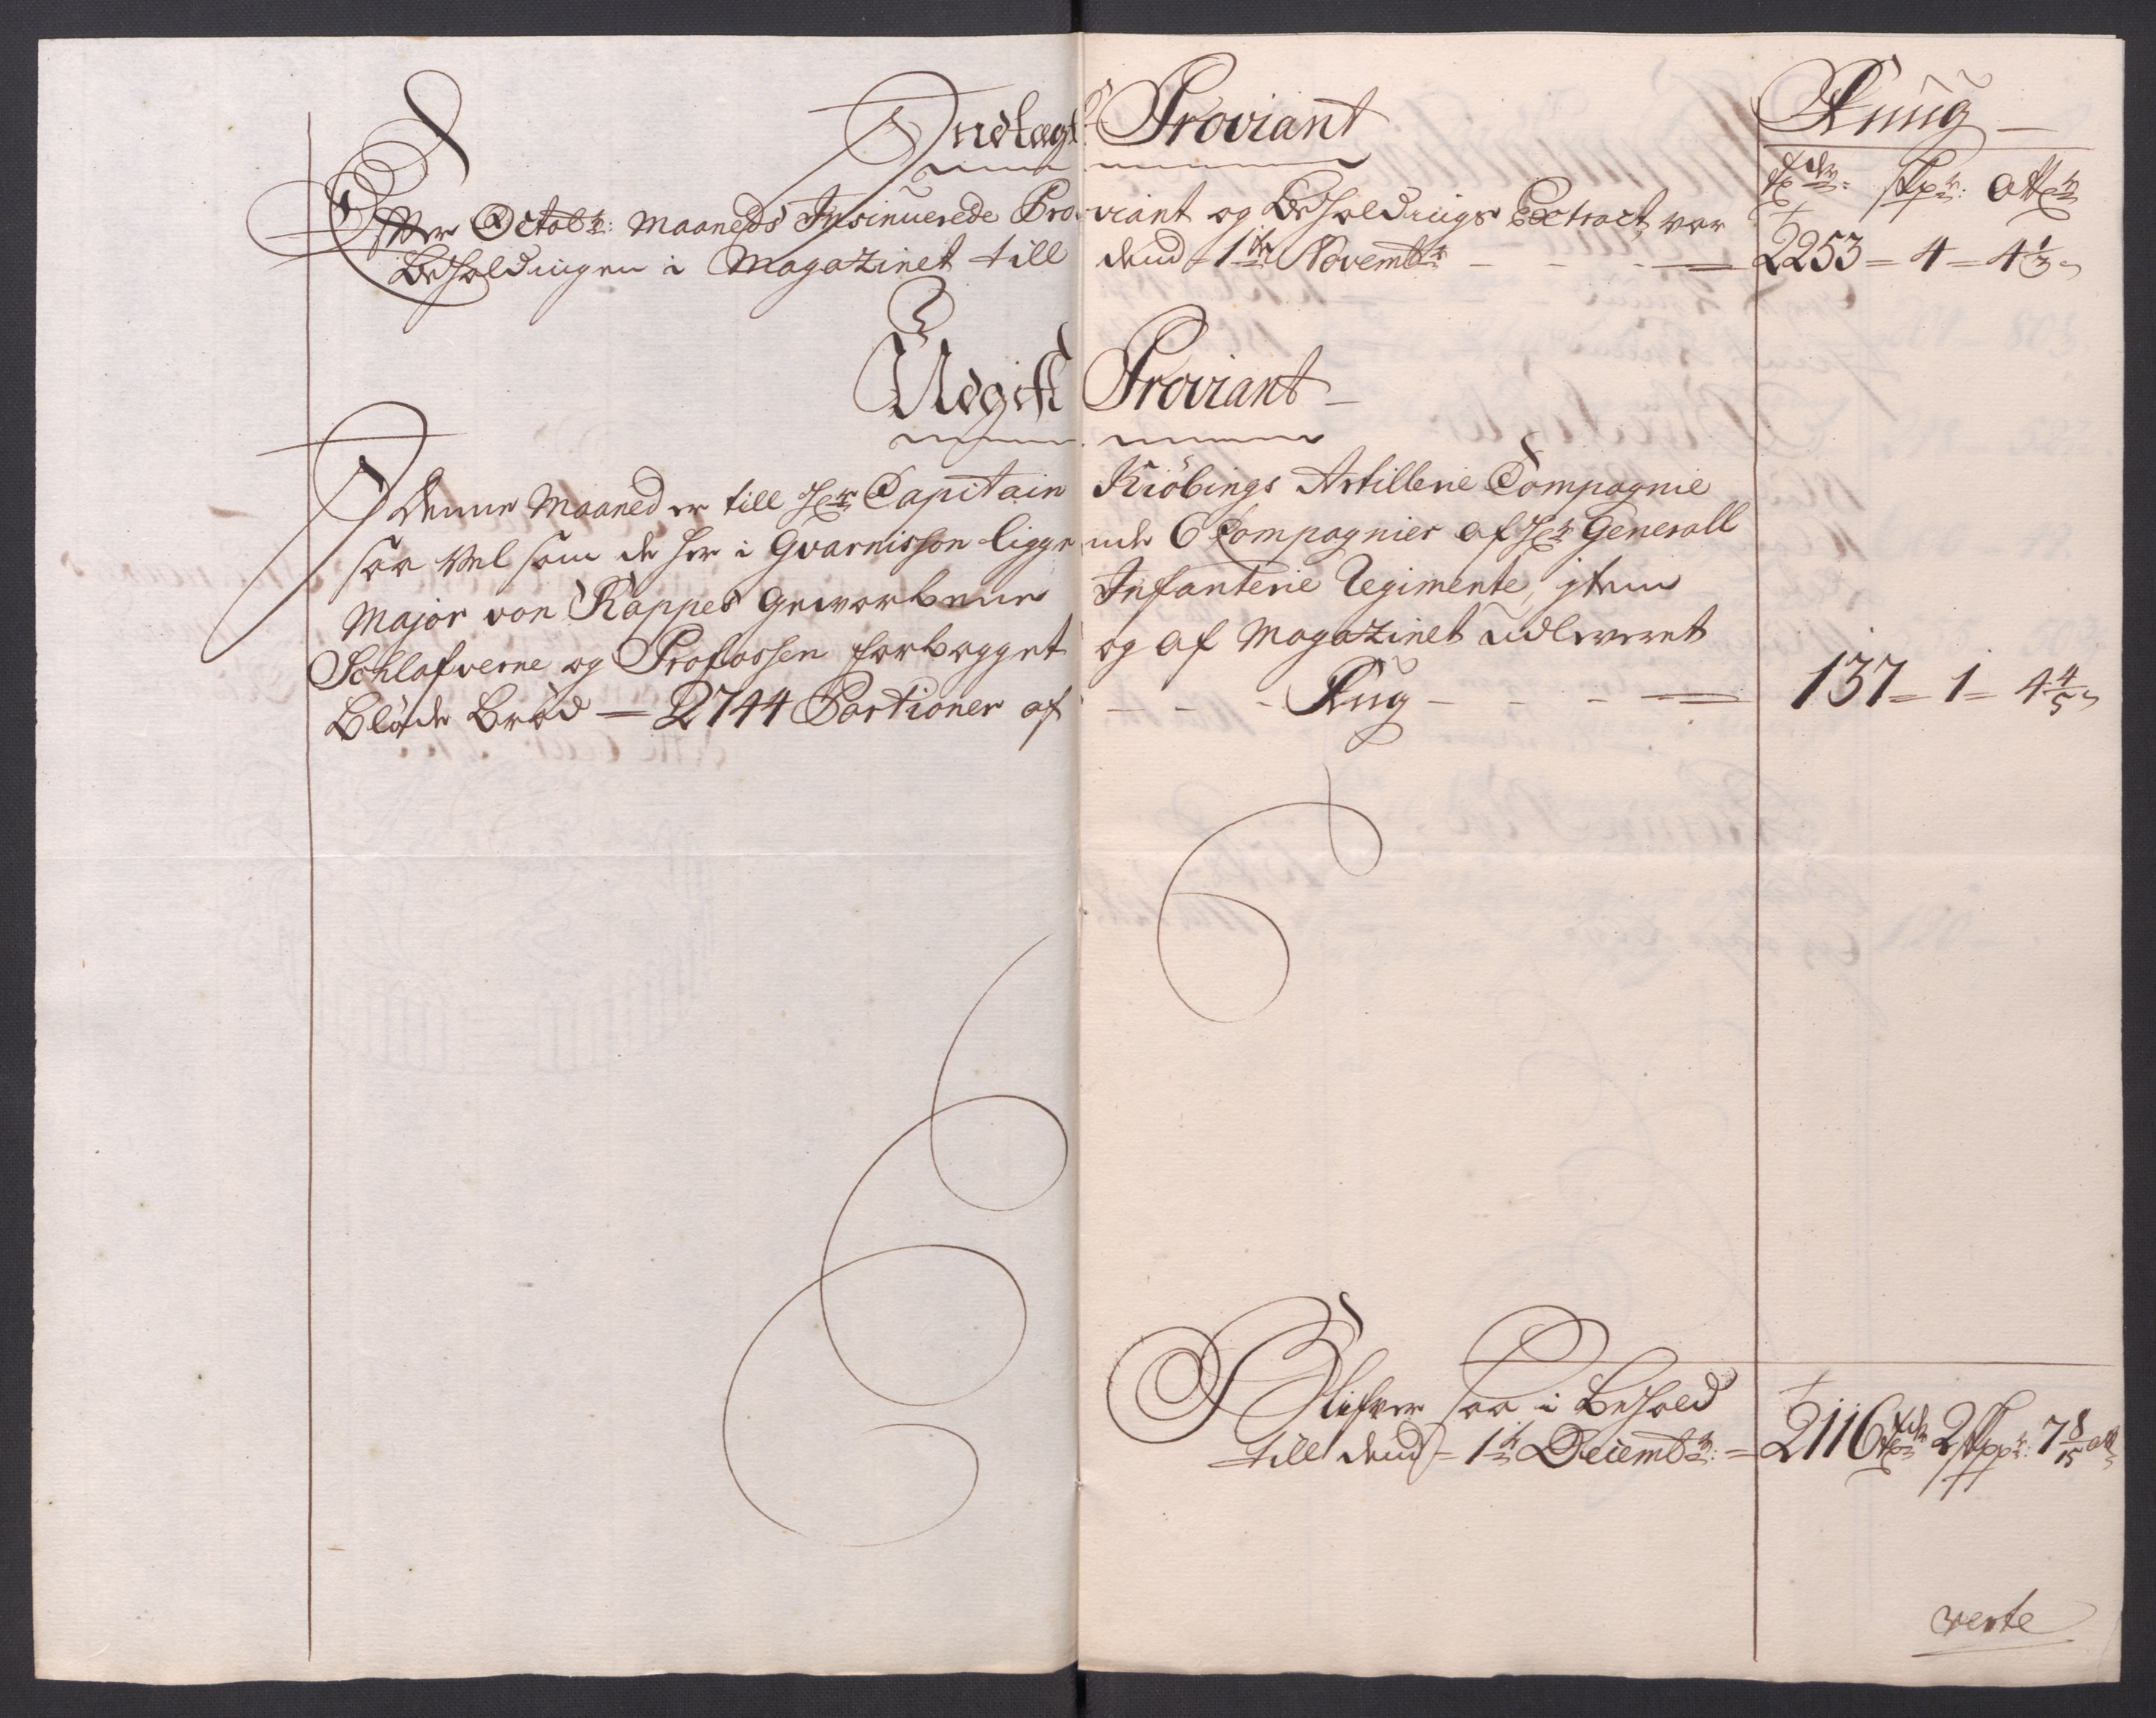 Indtægt Proviant
Ruug
tdr: skpr: ottr
Efter Octobr: Maaneds Insinuerede Proviant og Beholdnings Extract, var
Beholdningen i Magazinet till dend 1te Novembr — 2253 = 4 = 4 1/3
Udgift Proviant
I denne Maaned er till Hr Capitain Kiöbings Artillerie Compagnie
saa vel som de her i Gvarnisson liggende 6 Compagnier af Hr Generall
Major von Kappes Geworbene Infanterie Regimente, item
Schlafverne og Profossen forbagget og af Magazinet udleveret
Bløde Brød — 2744 Portioner af — Rug — 137 = 1 = 4 4/5
Blifver saa i Behold
till dend = 1te Decembr: = 2116 tdr 2 skpr: 7 8/15 ott
verte